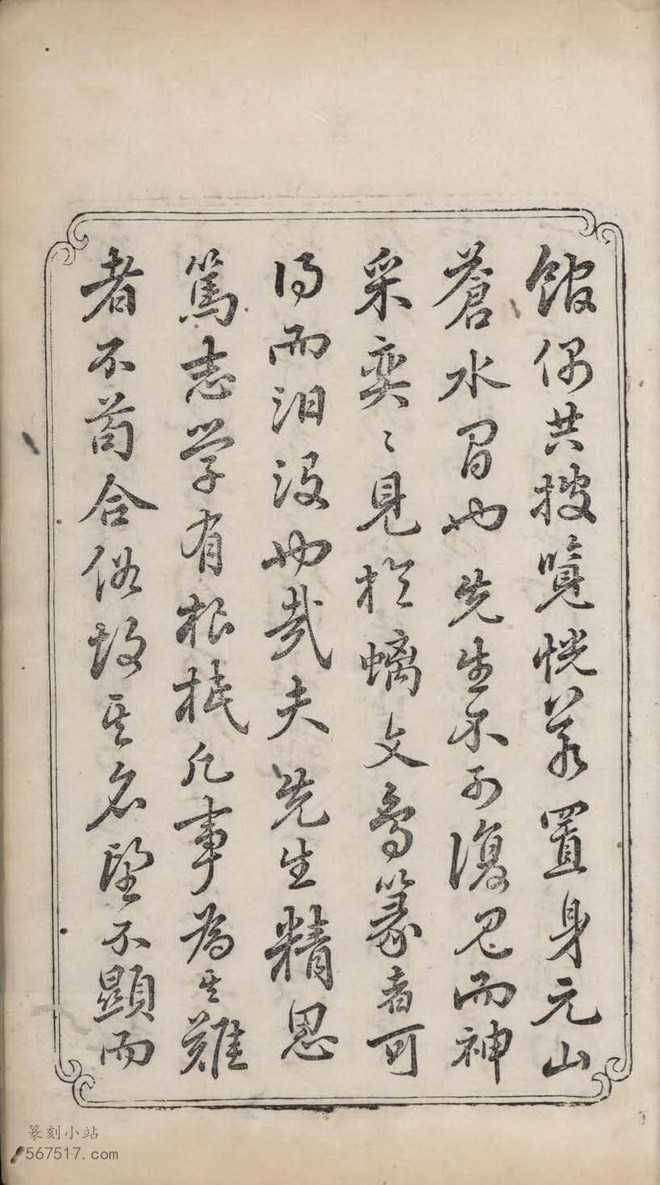 館偶共披覽恍若置身元山
蒼水間也先生不可復見而神
采奕〻見於螭文鳥篆者可
得而汨沒也哉夫先生精思
篤志學有根柢凡事為其難
者不苟合俗故其名望不顯而
篆刻小站
567517.com